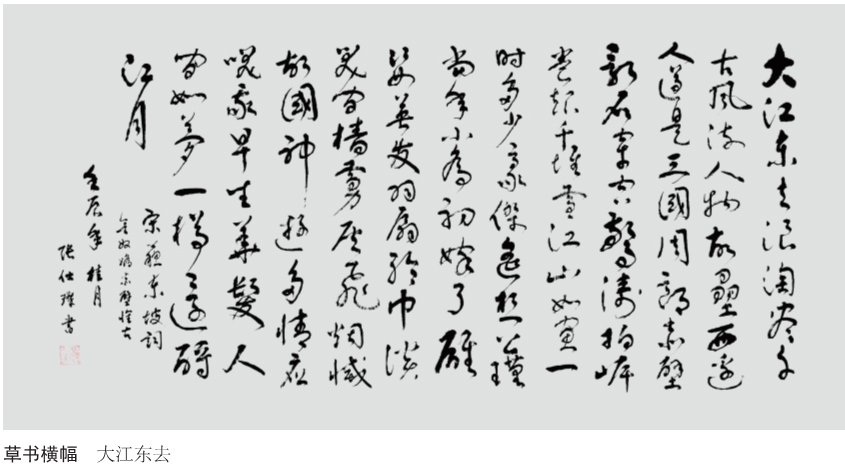 大江东去浪淘尽千
古风流人物故垒西边
人道是三國周郎赤壁
乱石穿空驚涛拍岸
卷起千堆雪江山如画一
时多少豪傑遥想公瑾
当年小乔初嫁了雄
姿英发羽扇纶巾谈
笑间樯虏灰飞烟灭
故國神遊多情应
笑我早生华髮人
间如梦一樽還酹
江月
宋苏东坡词
念奴娇赤壁怀古
壬辰年桂月
张仕书
草书横幅 大江东去